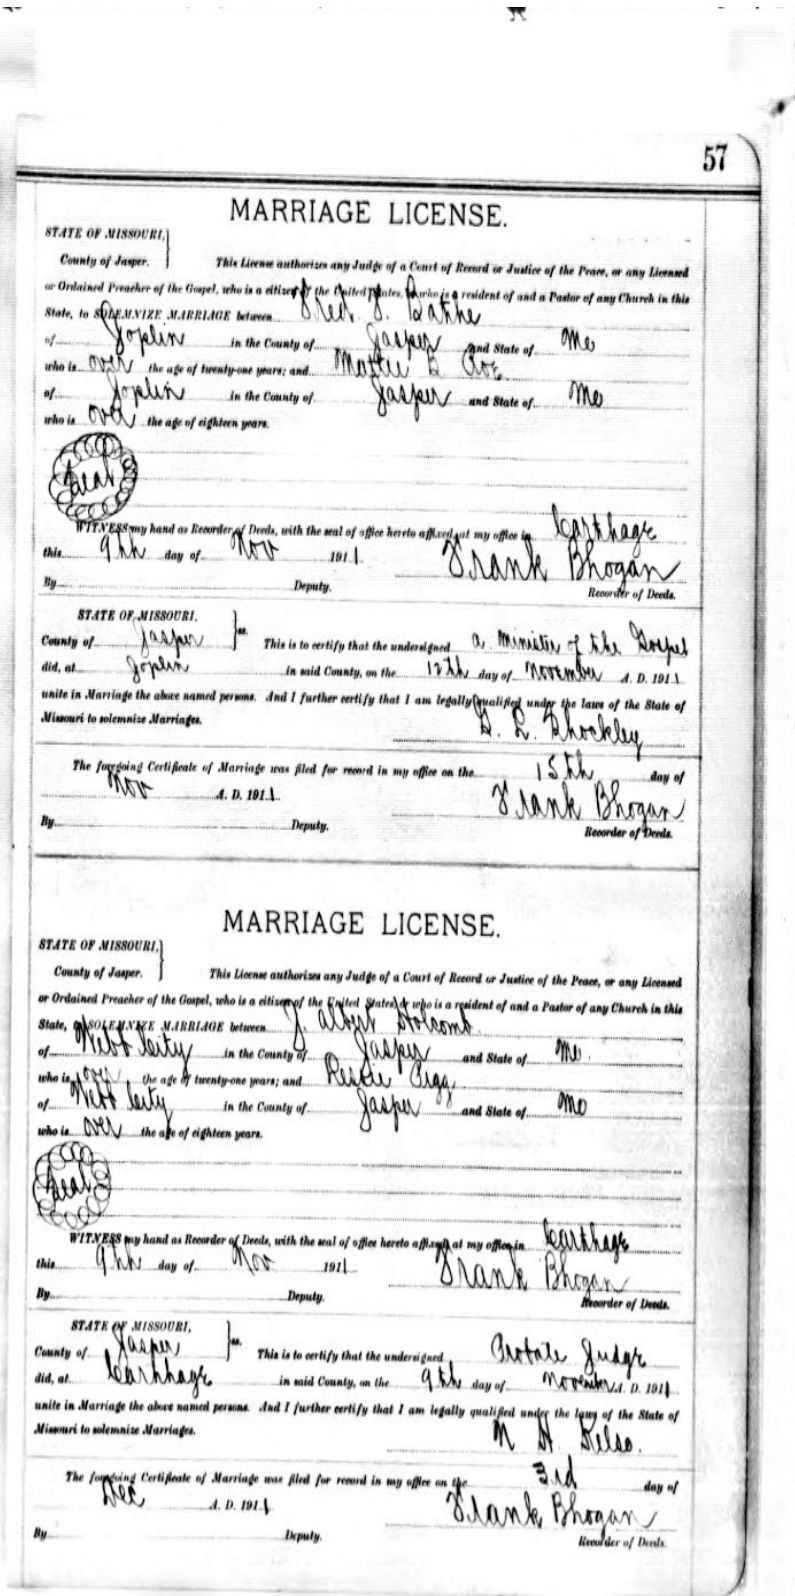 57
MARRIAGE LICENSE.
STATE OF MISSOURI,
County of Jasper. This License authorizes any Judge of a Court of Record or Justice of the Peace, or any Licensed
or Ordained Preacher of the Gospel, who is a citizen of the United States, or who is a resident of and a Pastor of any Church in this
State, to SOLEMNIZE MARRIAGE between Fred J.
of Joplin in the County of Jasper and State of Mo
who is over the age of twenty-one years; and Mattie E
of Joplin in the County of Jasper and State of Mo
who is over the age of eighteen years.
Seal
WITNESS my hand as Recorder of Deeds, with the seal of office hereto affixed, at my office in Carthage
this 9th day of Nov 1911. Frank Bhogan
By Deputy. Recorder of Deeds.
STATE OF MISSOURI,
County of Jasper ss. This is to certify that the undersigned a minister of the Gospel
did, at Joplin in said County, on the 12th day of November A. D. 1911
unite in Marriage the above named persons. And I further certify that I am legally qualified under the laws of the State of
Missouri to solemnize Marriages.
L.
The foregoing Certificate of Marriage was filed for record in my office on the 15th day of
Nov A. D. 1911. Frank Bhogan
By Deputy. Recorder of Deeds.
MARRIAGE LICENSE.
STATE OF MISSOURI,
County of Jasper. This License authorizes any Judge of a Court of Record or Justice of the Peace, or any Licensed
or Ordained Preacher of the Gospel, who is a citizen of the United States, or who is a resident of and a Pastor of any Church in this
State, to SOLEMNIZE MARRIAGE between J. Albert Holcomb
of Webb City in the County of Jasper and State of Mo.
who is over the age of twenty-one years; and Pigg
of Webb City in the County of Jasper and State of Mo
who is over the age of eighteen years.
Seal
WITNESS my hand as Recorder of Deeds, with the seal of office hereto affixed, at my office in Carthage
this 9th day of Nov 1911 Frank Bhogan
By Deputy. Recorder of Deeds.
STATE OF MISSOURI,
County of Jasper ss. This is to certify that the undersigned Probate Judge
did, at Carthage in said County, on the 9th day of November A. D. 1911
unite in Marriage the above named persons. And I further certify that I am legally qualified under the laws of the State of
Missouri to solemnize Marriages.
N H Kelso.
The foregoing Certificate of Marriage was filed for record in my office on the 3rd day of
Dec A. D. 1911 Frank Bhogan
By Deputy. Recorder of Deeds.